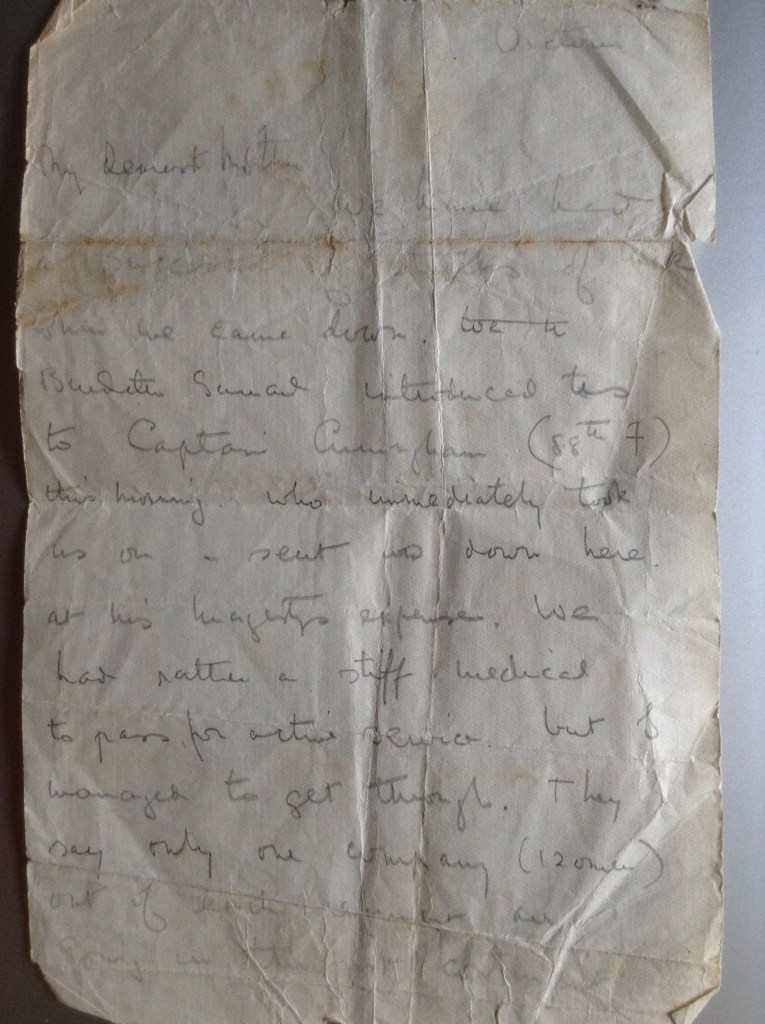 Victoria
My Dearest Mother
We have had
a of
when we came down. We
introduced us
to Captain Cuningham (88th
this morning. who immediately took
us on sent us down here.
at his Magestys expense. We
had rather a stiff medical
to pass for active service. but I
managed to get through. They
say only one company (120 men)
out of each are
going in the